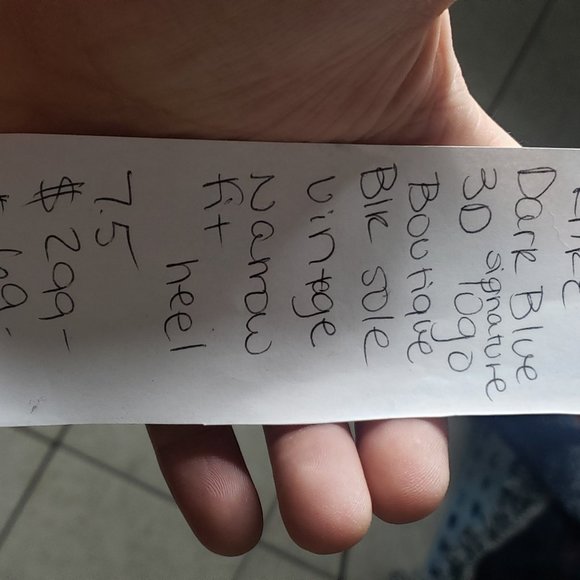 Dark Blue
30 signature
logo
Boutique
Blk sole
Vintage
Narrow
fit
heel
7.5
$299-